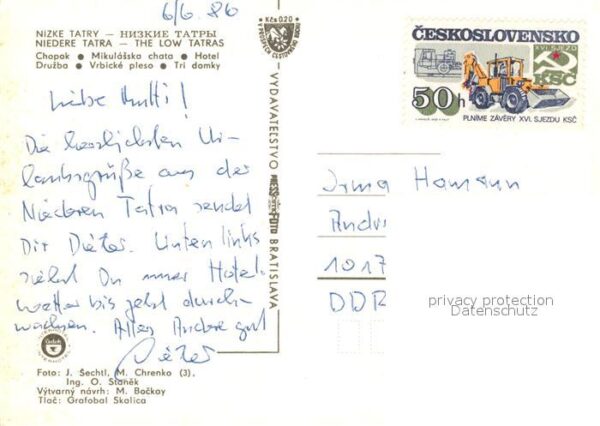 6/6. 86
NÍZKE TATRY — НИЗКИЕ ТАТРЫ
NIEDERE TATRA — THE LOW TATRAS
Chopok • Mikulášska chata • Hotel
Družba • Vrbické pleso • Tri domky
Kčs 0,20
ČESKOSLOVENSKO
XVI. SJEZD
KSČ
50h
PLNÍME ZÁVĚRY XVI. SJEZDU KSČ
Liebe Mutti!
Die herzlichsten Ur-
laubsgrüße aus der
Niederen Tatra sendet
Dir Dieter. Unten links
siehst Du unser Hotel.
Wetter bis jetzt durch-
wachsen. Alles Andere gut
Dieter
VYDAVATEĽSTVO PRESSFOTO BRATISLAVA
Irma Homann
Andr
1017
DDR
privacy protection
Datenschutz
Foto: J. Šechtl, M. Chrenko (3),
Ing. O. Staněk
Výtvarný návrh: M. Bočkay
Tlač: Grafobal Skalica